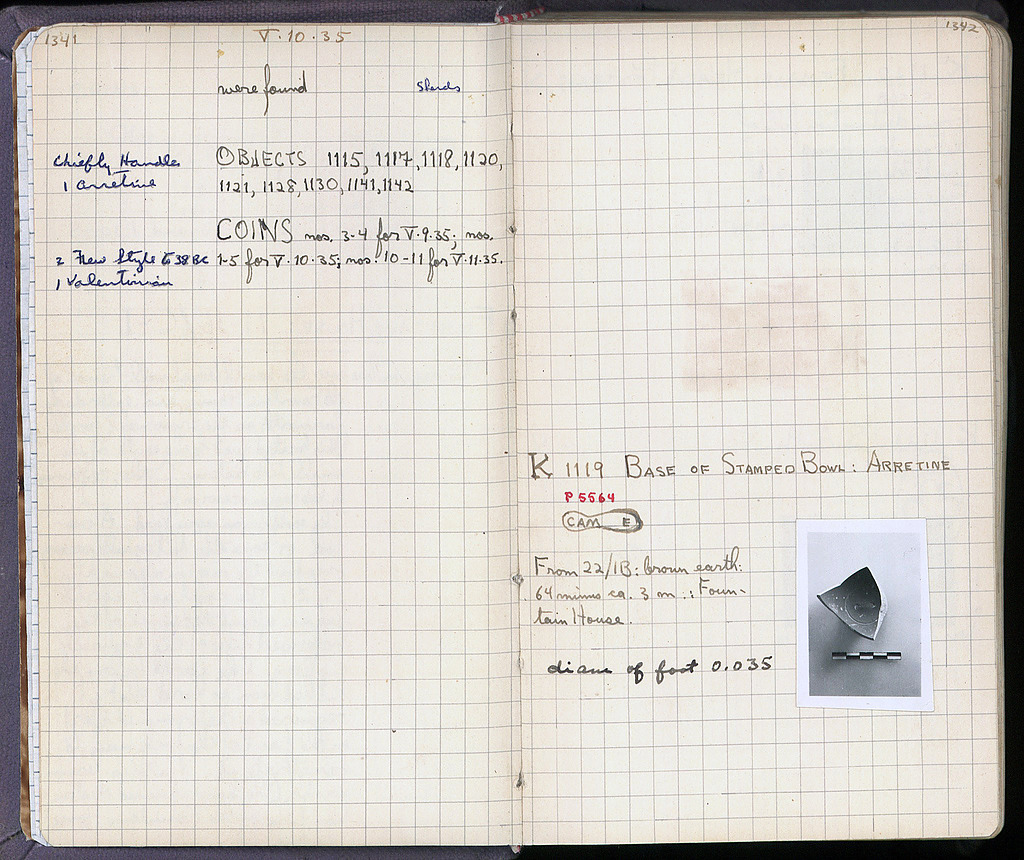 1341
V·10·35
were found
sherds
Chiefly Handles
1 arretine
OBJECTS 1115, 1117, 1118, 1120,
1121, 1128, 1130, 1141, 1142
COINS nos. 3-4 for V·9·35; nos.
1-5 for V·10·35; nos. 10-11 for V·11·35.
2 New Style 38 BC
1 Valentinian
1342
K 1119 BASE OF STAMPED BOWL: ARRETINE
P 5564
CAM E
From 22/IB: brown earth:
64 minus ca. 3 m .: Foun-
tain House.
diam of foot 0.035